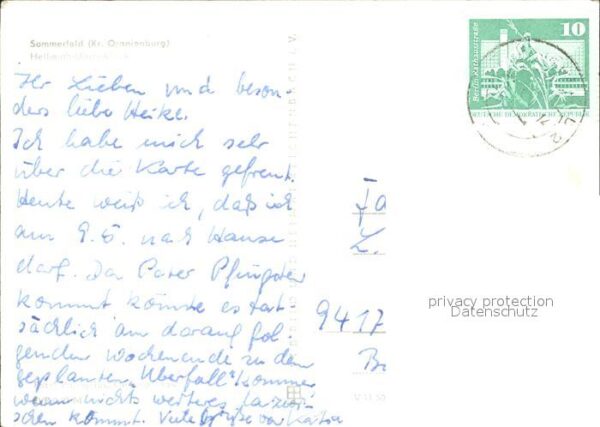 Sommerfeld (Kr. Oranienburg)
10
Berlin, Rathausstraße
DEUTSCHE DEMOKRATISCHE REPUBLIK
Ihr Lieben und beson-
ders liebe Heike.
Ich habe mich sehr
über die Karte gefreut.
Heute weiß ich, daß ich
am 9.6. nach Hause
darf. Da Pfingsten
kommt könnte es tat-
sächlich am darauf fol-
genden Wochenende zu dem
geplanten "Überfall" kommen,
wenn nichts weiteres dazwi-
schen kommt. Viele Grüße von
Fa
9417
privacy protection
Datenschutz